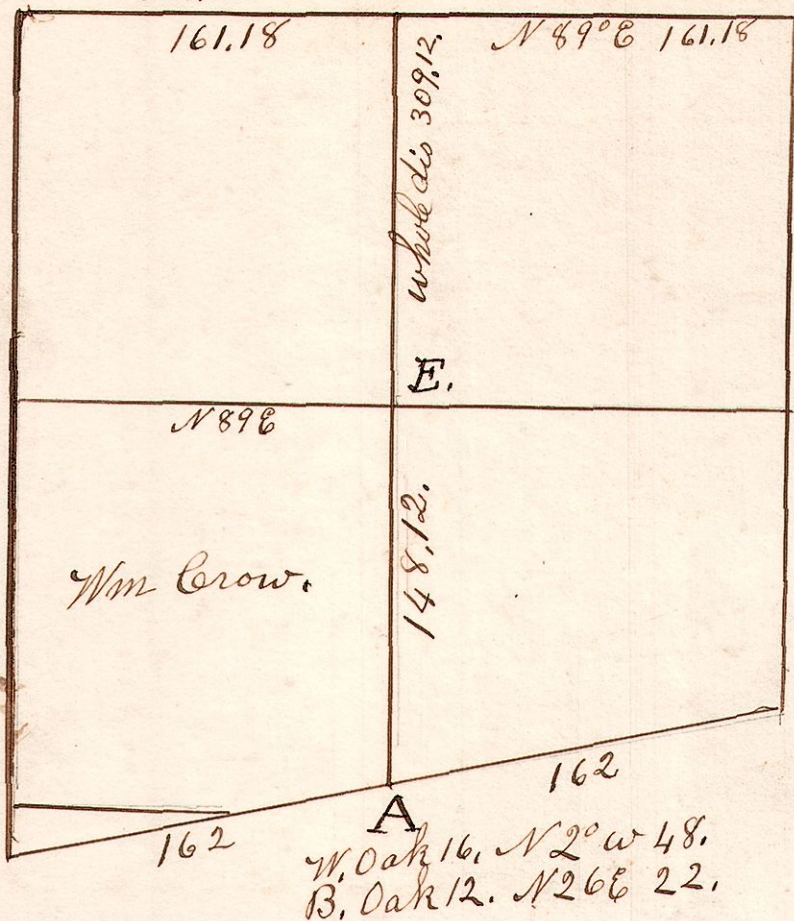 161.18
N 89° E 161.18
whole dis 309.12.
E.
N 89 E
148.12.
Wm Crow.
162
162
A
W. Oak 16. N 2° w 48.
B. Oak 12. N 26 E 22.